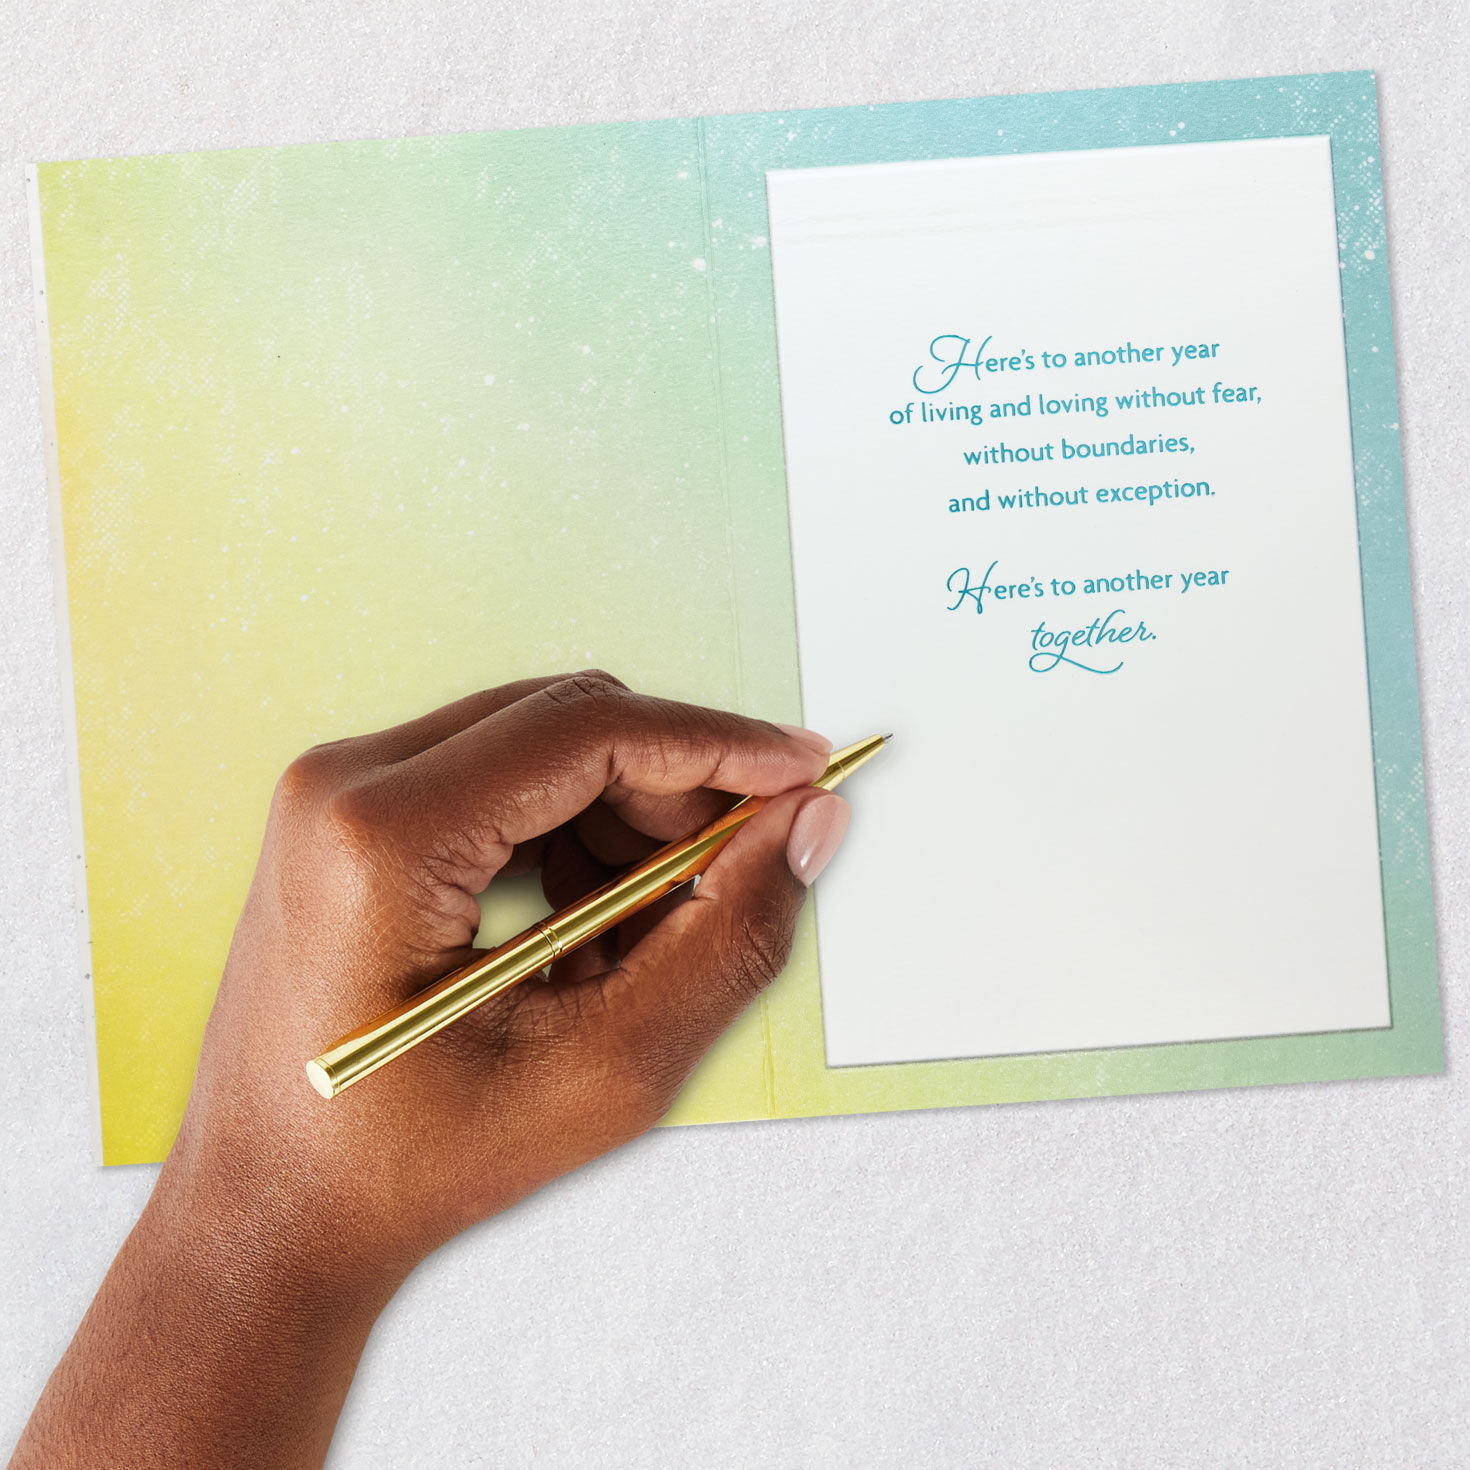 Here's to another year
of living and loving without fear,
without boundaries,
and without exception.
Here's to another year
together.